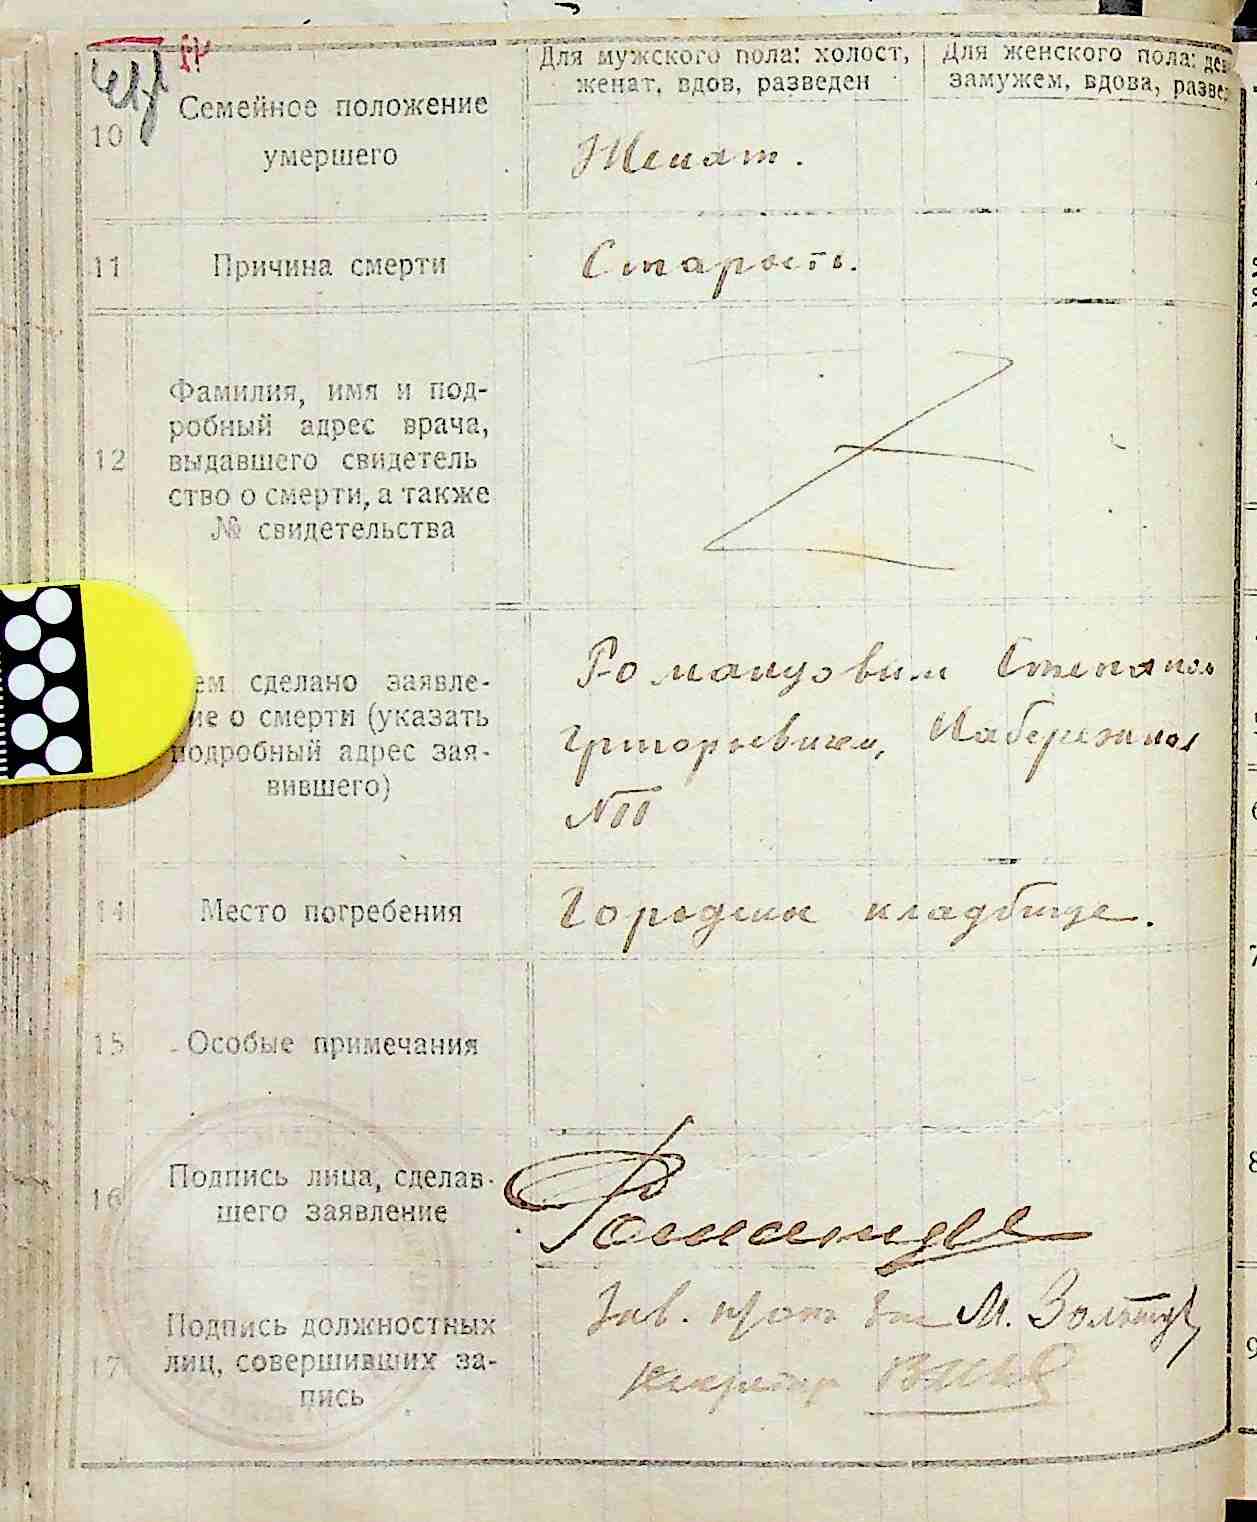 Для мужского пола: холост,
женат, вдов, разведен
Для женского пола: дев
замужем, вдова, разве
10
Семейное положение
умершего
Женат.
11
Причина смерти
Старость.
12
Фамилия, имя и под-
робный адрес врача,
выдавшего свидетель
ство о смерти, а также
№ свидетельства
ем сделано заявле-
ие о смерти (указать
подробный адрес зая-
вившего)
Романцовым Степаном
Григорьевичем, Набережная
14
Место погребения
Городское кладбище.
15
Особые примечания
16
Подпись лица, сделав-
шего заявление
17
Подпись должностных
лиц, совершивших за-
пись
Зав. М.
Секретарь